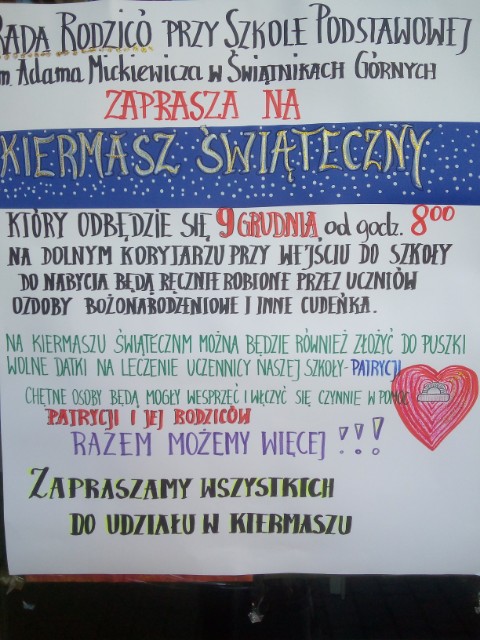 RADA RODZICÓ PRZY SZKOLE PODSTAWOWEJ
m. ADAMA MICKIEWICZA W ŚWIĄTNIKACH GÓRNYCH
ZAPRASZA NA
KIERMASZ ŚWIĄTECZNY
KTÓRY ODBĘDZIE SIĘ 9 GRUDNIA, od godz. 8⁰⁰
NA DOLNYM KORYTARZU PRZY WEJŚCIU DO SZKOŁY
DO NABYCIA BĘDĄ RĘCZNIE ROBIONE PRZEZ UCZNIÓW
OZDOBY BOŻONARODZENIOWE I INNE CUDEŃKA.
NA KIERMASZU ŚWIĄTECZNM MOŻNA BĘDZIE RÓWNIEŻ ZŁOŻYĆ DO PUSZKI
WOLNE DATKI NA LECZENIE UCZENNICY NASZEJ SZKOŁY-PATRYCJI
CHĘTNE OSOBY BĘDĄ MOGŁY WESPRZEĆ I WŁĄCZYĆ SIĘ CZYNNIE W POMOC
PATRYCJI I JEJ RODZICÓW
RAZEM MOŻEMY WIĘCEJ !!!
ZAPRASZAMY WSZYSTKICH
DO UDZIAŁU W KIERMASZU